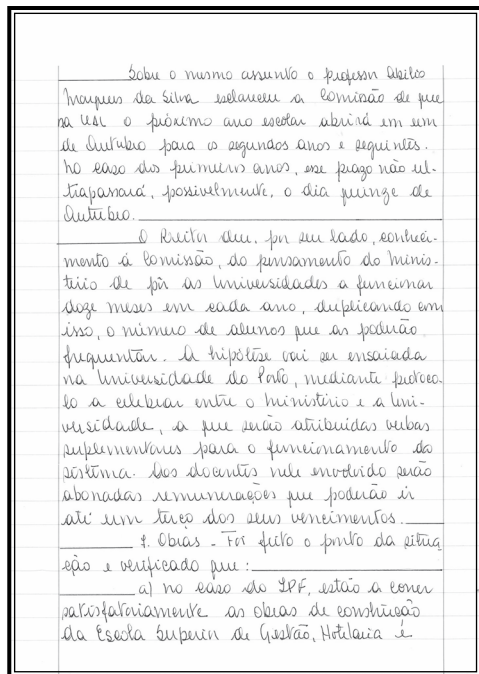 Sobre o mesmo assunto o professor Abílio
Marques da Silva esclareceu a Comissão de que
na UAL o próximo ano escolar abrirá em um
de Outubro para os segundos anos e seguintes.
No caso dos primeiros anos, esse prazo não ul-
trapassará, possivelmente, o dia quinze de
Outubro.
O Reitor deu, por seu lado, conheci-
mento à Comissão, do pensamento do Minis-
tério de pôr as Universidades a funcionar
doze meses em cada ano, duplicando com
isso, o número de alunos que as poderão
frequentar. A hipótese vai ser ensaiada
na Universidade do Porto, mediante protoco-
lo a celebrar entre o Ministério e a Uni-
versidade, a que serão atribuidas verbas
suplementares para o funcionamento do
sistema. Aos docentes nele envolvido serão
abonadas remunerações que poderão ir
até um terço dos seus vencimentos.
7. Obras - Foi feito o ponto da situa-
ção e verificado que:
a) no caso do IPF, estão a correr
satisfatoriamente as obras de construção
da Escola Superior de Gestão, Hotelaria e